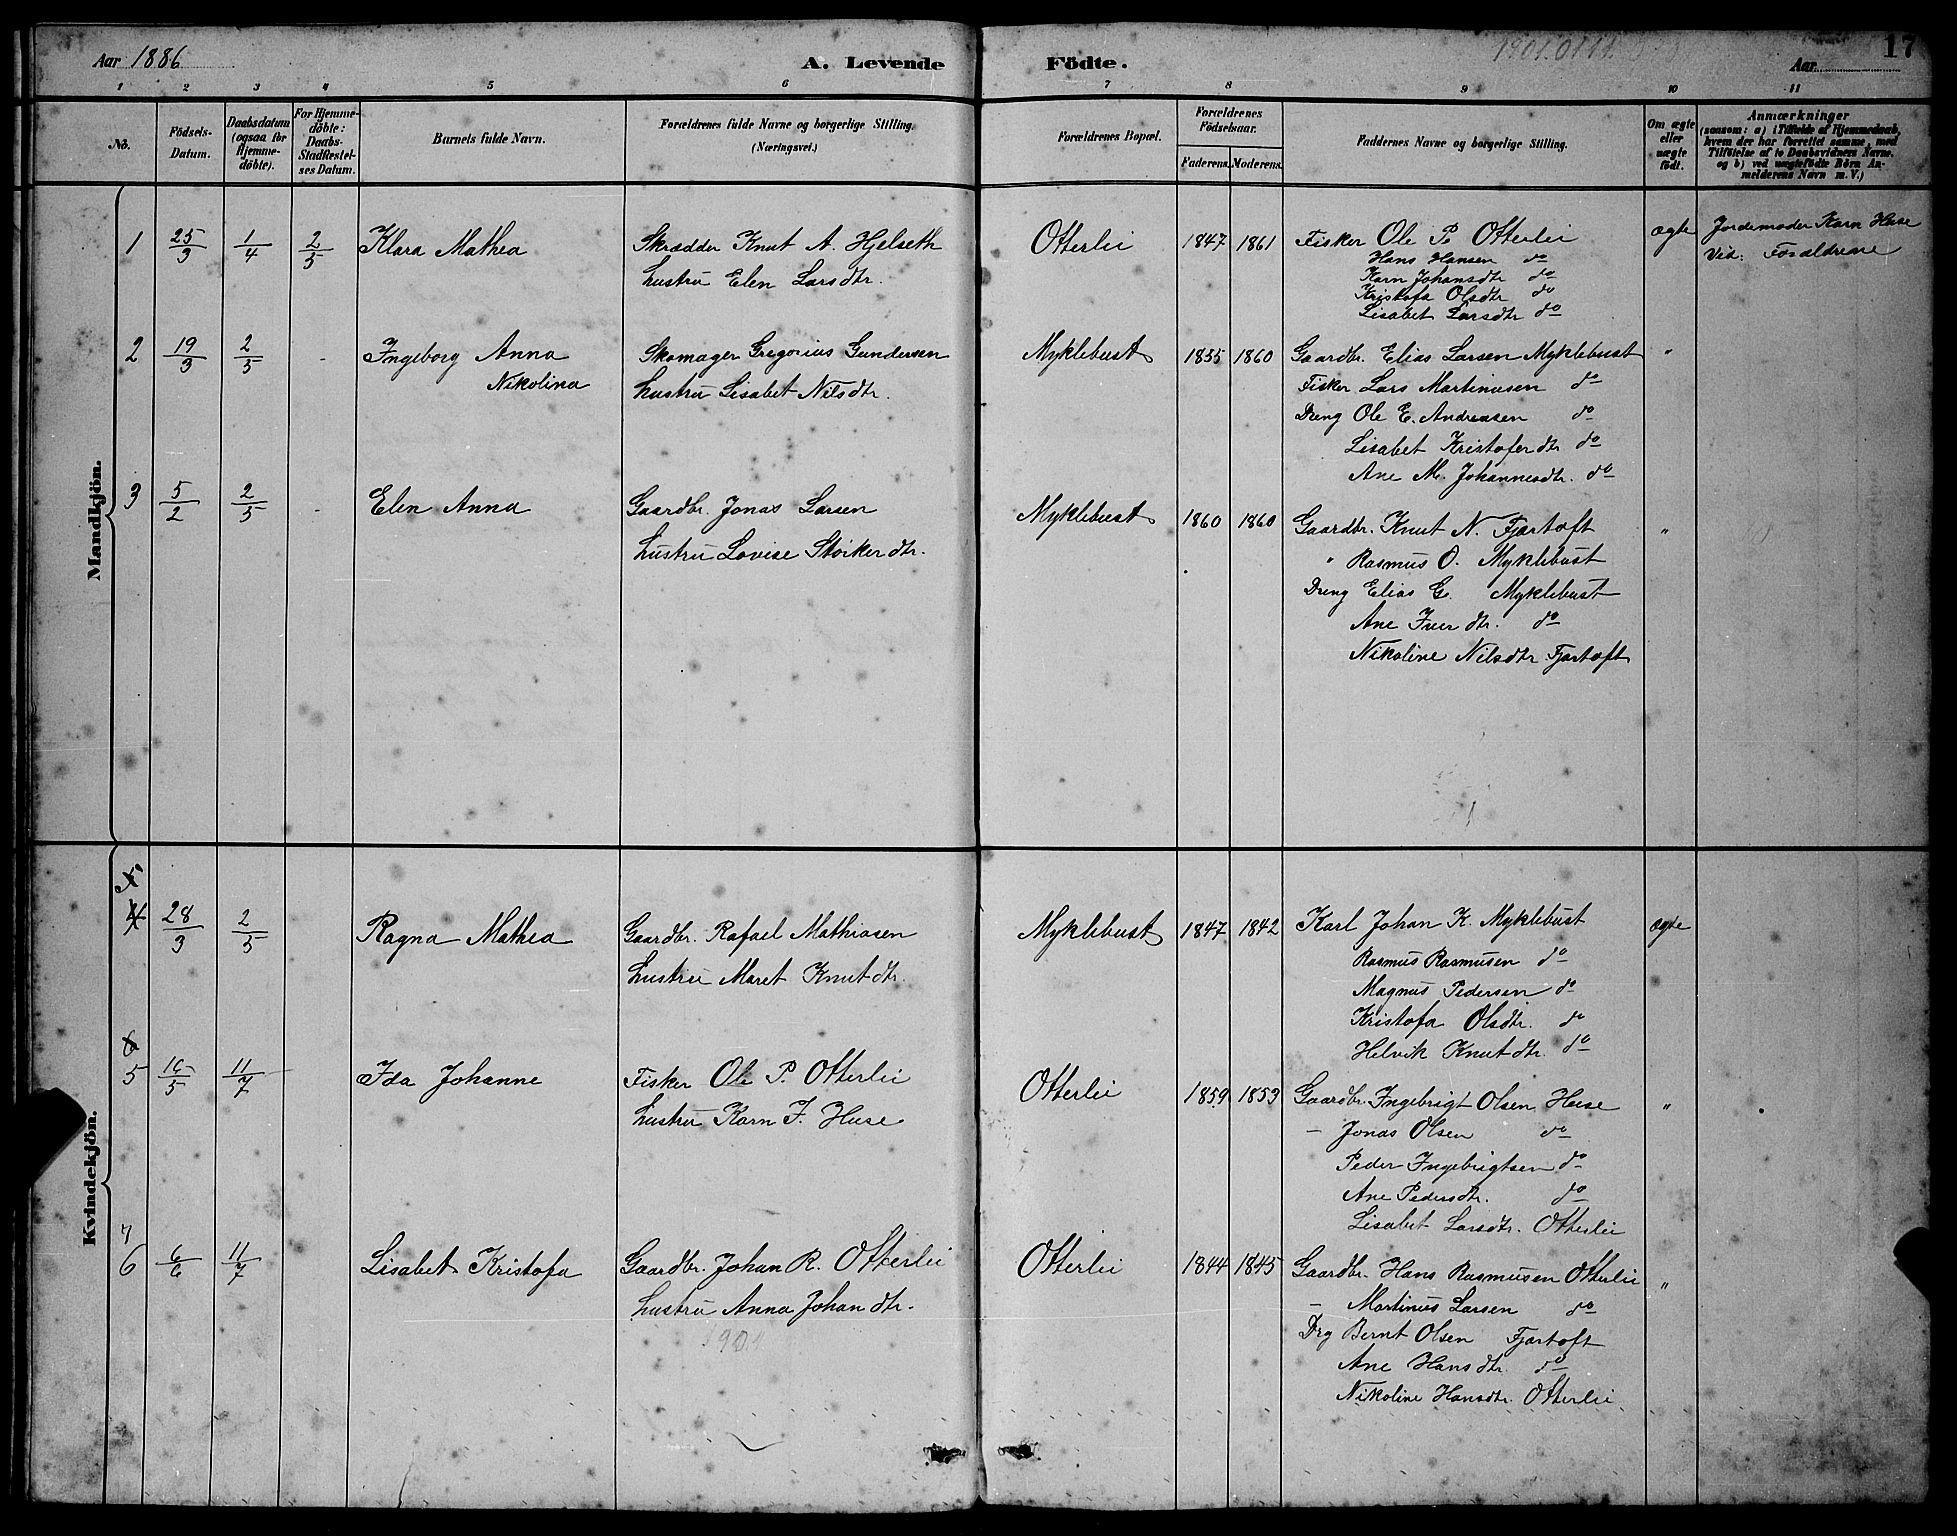 Aar 1886 A. Levende Fødte. Aar 17
1 2 3 4 5 6 7 8 9 10 11
No. Födsels-Datum. Daabsdatum (ogsaa for Hjemmedöbte). For Hjemmedöbte: Daabs-Stadfæstelses Datum. Barnets fulde Navn. Forældrenes fulde Navne og borgerlige Stilling. (Næringsvei.) Forældrenes Bopæl. Forældrenes Födselsaar. Faderens. Moderens. Faddernes Navne og borgerlige Stilling. Om ægte eller uægte födt. Anmærkninger (saasom: a) i Tilfælde af Hjemmedaab, hvem der har forrettet samme, med Tilföielse af to Daabsvidners Navne, og b) ved uægtefödte Börn Anmelderens Navn m. V.)
Mandkjön.
1 25/3 1/4 2/5 Klara Mathea Skrædder Knut A. Hjelseth Otterlei 1847 1861 Fisker Ole P. Otterlei ægte Jordemoder Karn Huse
Hustru Elen Larsdtr. Hans Hansen do Vid: Forældrene
Karn Johansdtr do
Kristofa Olsdtr do
Lisabet Larsdtr do
2 19/3 2/5 - Ingeborg Anna Skomager Gregorius Gundersen Myklebust 1855 1860 Gaardbr. Elias Larsen Myklebust "
Nikolina Hustru Lisabet Nilsdtr. Fisker Lars Martinusen do
Dreng Ole E. Andreasen do
Lisabet Kristoferdtr do
Ane M. Johannesdtr. do
3 5/2 2/5 - Elen Anna Gaardbr. Jonas Larsen Myklebust 1860 1860 Gaardbr. Knut N. Fjørtoft "
Hustru Lovise Störkerdtr. " Rasmus O. Myklebust
Dreng Elias G. Myklebust
Ane Iverdtr. do
Nikoline Nilsdtr. Fjørtoft
Kvindekjön.
5
4 28/3 2/5 Ragna Mathea Gaardbr. Rafael Mathiasen Myklebust 1847 1842 Karl Johan K. Myklebust ægte
Hustru Maret Knutdtr. Rasmus Rasmusen do
Magnus Pedersen do
Kristofa Olsdtr. do
Helvik Knutdtr. do
6
5 16/5 11/7 Ida Johanne Fisker Ole P. Otterlei Otterlei 1859 1853 Gaardbr. Ingebrigt Olsen Huse "
Hustru Karn J. Huse - Jonas Olsen do
Peder Ingebrigtsen do
Ane Pedersdtr. do
Lisabet Larsdtr. Otterlei
7
6 6/6 11/7 Lisabet Kristofa Gaardbr. Johan R. Otterlei Otterlei 1844 1845 Gaardbr. Hans Rasmusen Otterlei "
Hustru Anna Johandtr. - Martinus Larsen do
Drg Bernt Olsen Fjørtoft
Ane Hansdtr. do
Nikoline Hansdtr. Otterlei